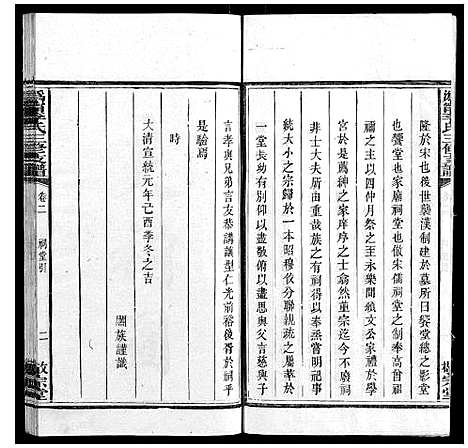 隆於宋也後世襲漢制建於墓所日祭堂總之影堂
也饗堂也家廟祠堂也倣宋儒祠堂之制奉高曾祖
禰之主以四仲月祭之至永樂間頒文公家禮於學
宮於是薦紳之家庠序之士翕然宗至今不廢祠
非士大夫所得立也重哉族之有祠
統大小之宗歸於一本昭穆攸分聯親疏之屬萃於
一堂長幼有別仰以盡敬俯以盡思與父言慈與子
言孝與兄弟言友恭講讓型仁光前裕後胥於祠乎
是驗焉
時
大清宣統元年己酉季冬之吉
闔族謹識
氏三修支譜
卷二
祠堂引
二
敦宗堂